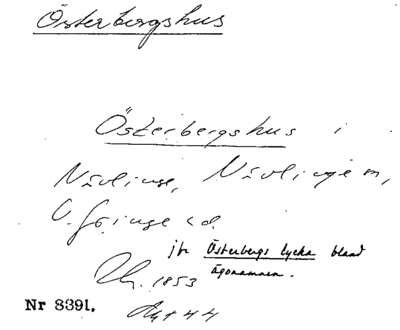 Österbergshus
Österbergshus i
Nävlinge, Nävlinge sn,
V. Göinge hd.
jfr Österbergs lycka bland
ägonamnen.
1853
Nr 8391.
Akt 44